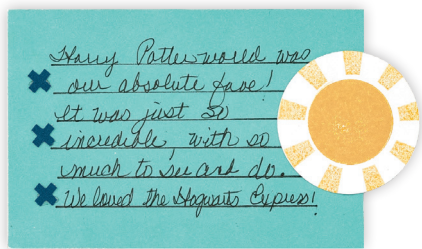 Harry Potter world was
our absolute fave!
It was just so
incredible, with so
much to see and do.
We loved the Hogwarts Express!